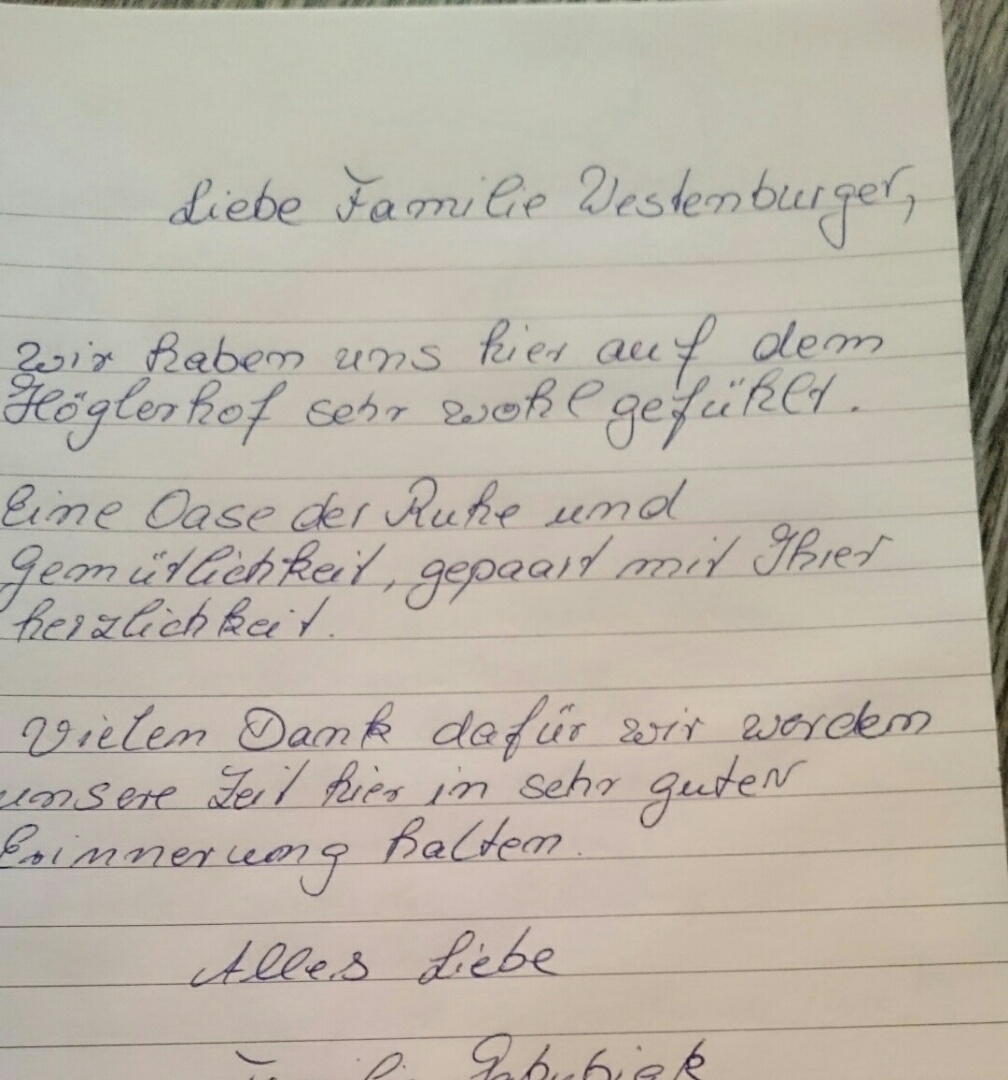 Liebe Familie Westenburger,
Wir haben uns hier auf dem
Höglerhof sehr wohl gefühlt.
Eine Oase der Ruhe und
Gemütlichkeit, gepaart mit Ihrer
herzlichkeit.
Vielen Dank dafür wir werden
unsere Zeit hier in sehr guter
Erinnerung halten.
Alles Liebe
Familie